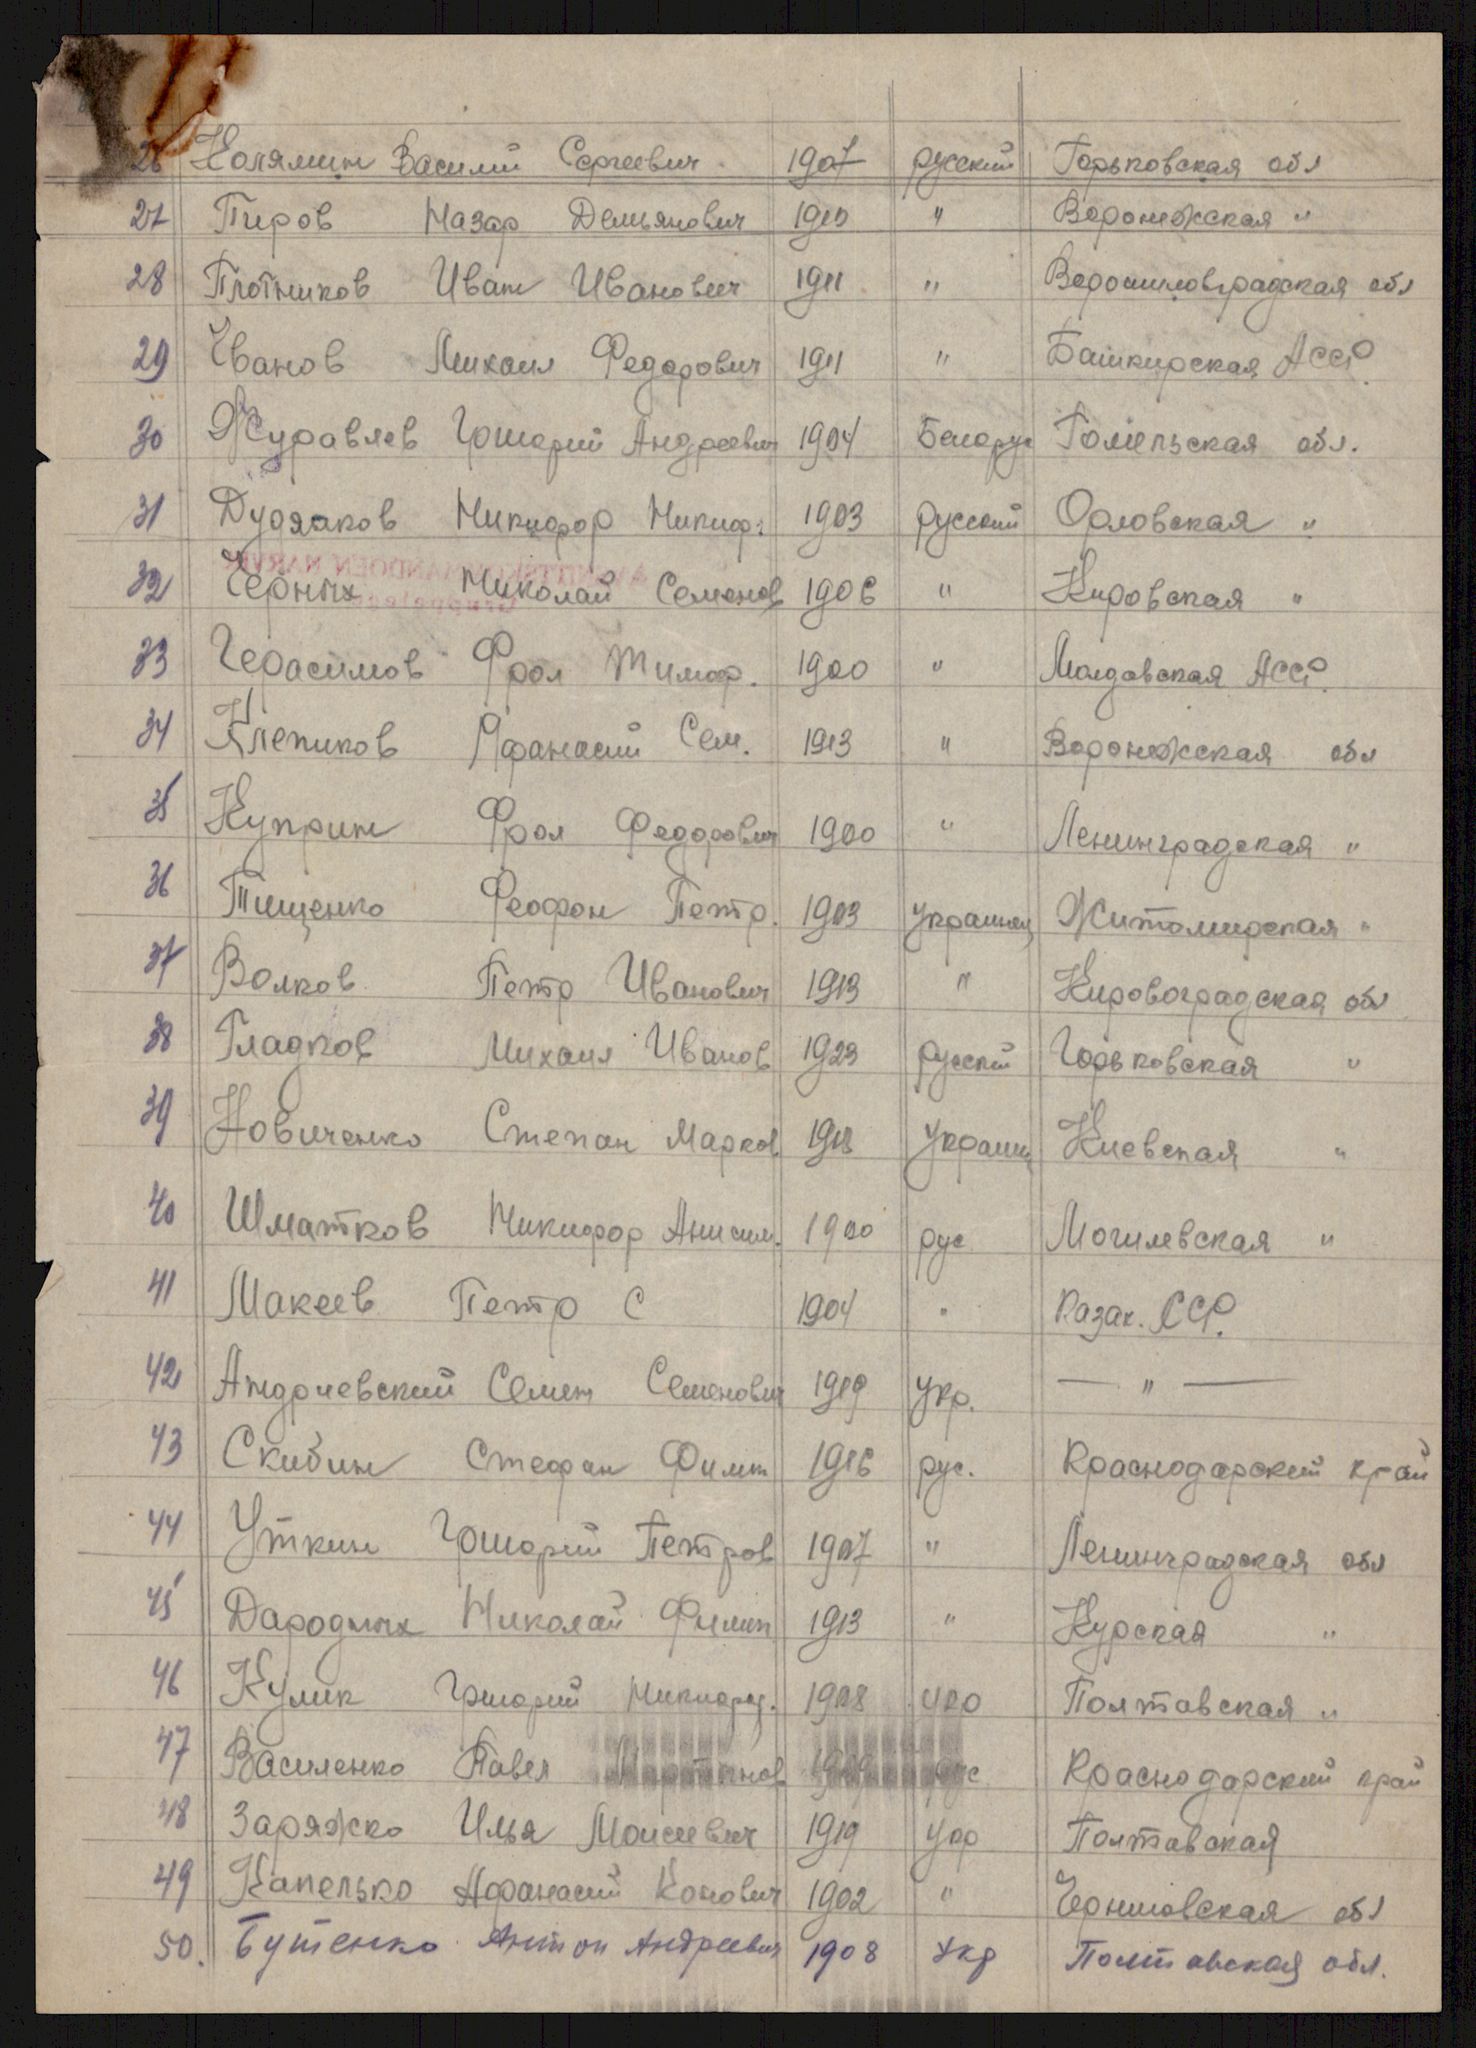 26 Колямин Василий Сергеевич 1907 русский Горьковская обл
27 Пиров Назар Демьянович 1910 " Воронежская "
28 Плотников Иван Иванович 1911 " Ворошиловградская обл
29 Иванов Михаил Федорович 1911 " Башкирская АССР
30 Журавлев Григорий Андреевич 1904 Белорус Гомельская обл.
31 Дудяков Никифор Никиф. 1903 русский Орловская "
32 Черных Николай Семенов 1906 " Кировская "
33 Герасимов Фрол Тимоф. 1900 " Молдавская АССР
34 Клепиков Афанасий Сем. 1913 " Воронежская обл
35 Куприн Фрол Федорович 1900 " Ленинградская "
36 Тищенко Феофон Петр. 1903 украинец Житомирская "
37 Волков Петр Иванович 1913 " Кировоградская обл
38 Гладков Михаил Иванов 1923 русский Горьковская "
39 Новиченко Степан Марков 1918 украинц Киевская "
40 Шматков Никифор Анисим. 1900 рус Могилевская "
41 Макеев Петр С 1904 " Казах. ССР.
42 Андриевский Семен Семенович 1919 укр. — " —
43 Скибин Стефан Филип 1916 рус. Краснодарский край
44 Уткин Григорий Петров 1907 " Ленинградская обл
45 Дародных Николай Филип 1913 " Курская "
46 Кулик Григорий Никифор. 1908 укр Полтавская "
47 Василенко Павел Мартынов 1909 рус Краснодарский край
48 Заряжко Илья Моисеевич 1919 укр Полтавская
49 Капелько Афанасий Конович 1902 " Черниговская обл
50. Бутенко Антон Андреевич 1908 укр Полтавская обл.